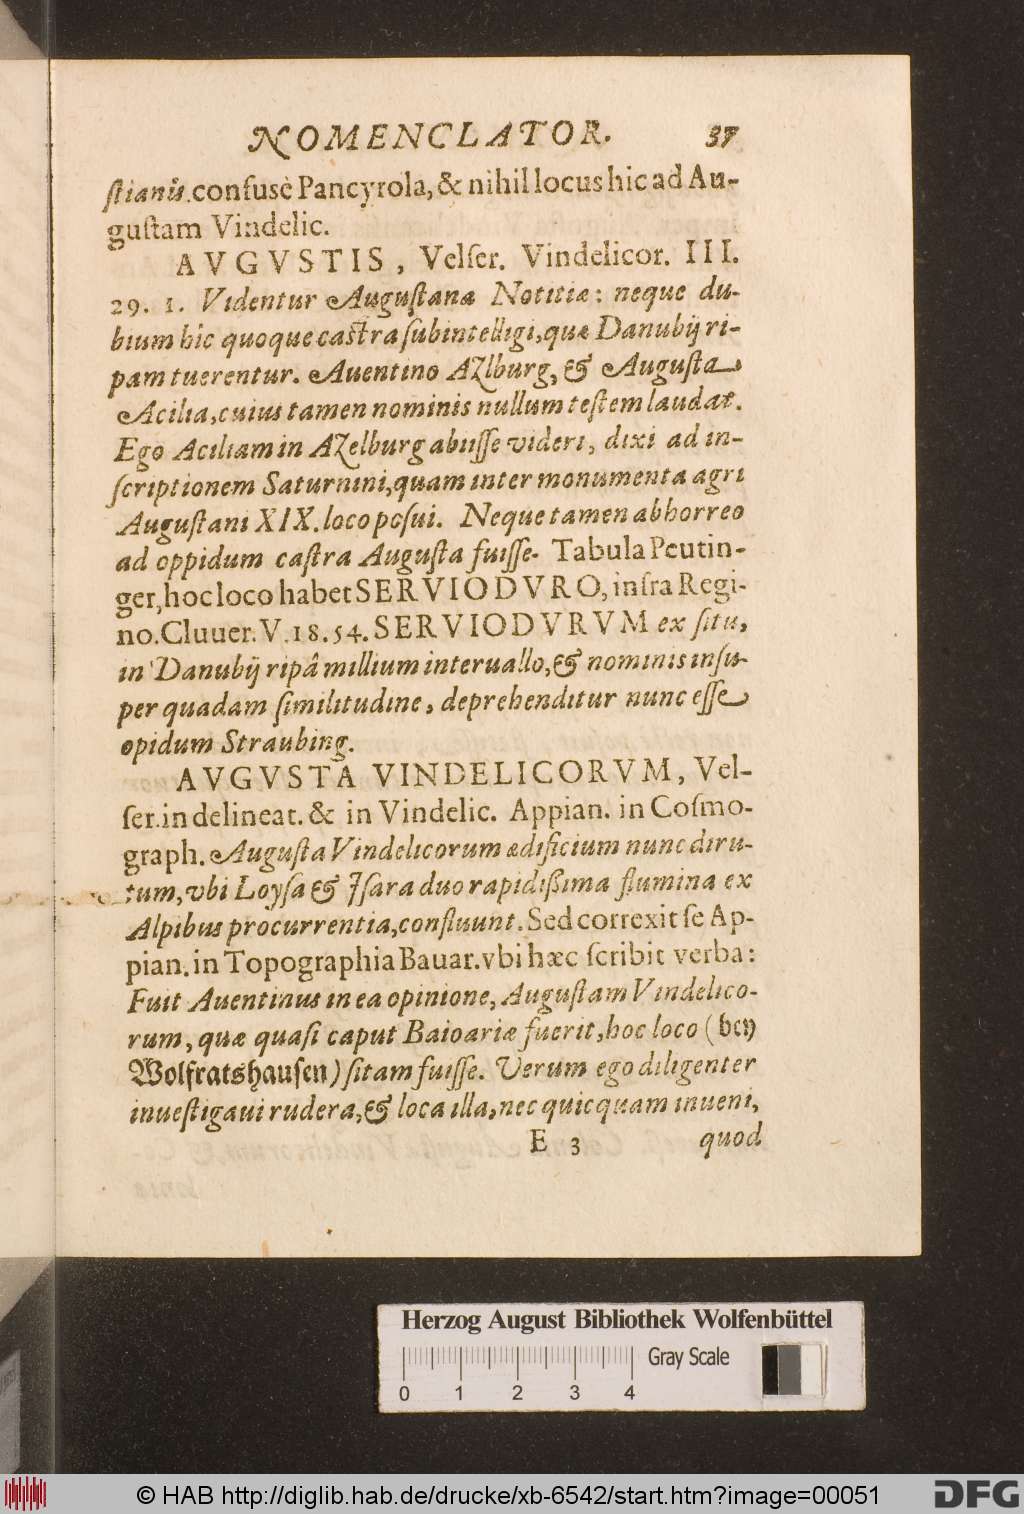 NOMENCLATOR. 37
ſtianûs. confusè Pancyrola, & nihil locus hic ad Au-
guſtam Vindelic.
AVGVSTIS, Velſer. Vindelicor. III.
29. 1. Videntur Auguſtana Notitiæ: neque du-
bium hîc quoque caſtra ſubintelligi, quæ Danubij ri-
pam tuerentur. Auentino AZlburg, & Auguſta
Acilia, cuius tamen nominis nullum teſtem laudat.
Ego Aciliam in AZelburg abiiſſe videri, dixi ad in-
ſcriptionem Saturnini, quam inter monumenta agri
Auguſtani XIX. loco poſui. Neque tamen abhorreo
ad oppidum caſtra Auguſta fuiſſe. Tabula Peutin-
ger, hoc loco habet SERVIODVRO, infra Regi-
no. Cluuer. V. 18. 54. SERVIODVRVM ex ſitu,
in Danubij ripâ millium interuallo, & nominis inſu-
per quadam ſimilitudine, deprehenditur nunc eſſe
opidum Straubing.
AVGVSTA VINDELICORVM, Vel-
ſer. in delineat. & in Vindelic. Appian. in Coſmo-
graph. Auguſta Vindelicorum ædificium nunc diru-
tum, vbi Loyſa & Iſara duo rapidißima flumina ex
Alpibus procurrentia, confluunt. Sed correxit ſe Ap-
pian. in Topographia Bauar. vbi hæc ſcribit verba:
Fuit Auentinus in ea opinione, Auguſtam Vindelico-
rum, quæ quaſi caput Baioariæ fuerit, hoc loco (bey
Wolfratshauſen) ſitam fuiſſe. Verum ego diligenter
inueſtigaui rudera, & loca illa, nec quicquam inueni,
E 3 quod
Herzog August Bibliothek Wolfenbüttel
Gray Scale
0 1 2 3 4
© HAB http://diglib.hab.de/drucke/xb-6542/start.htm?image=00051
DFG